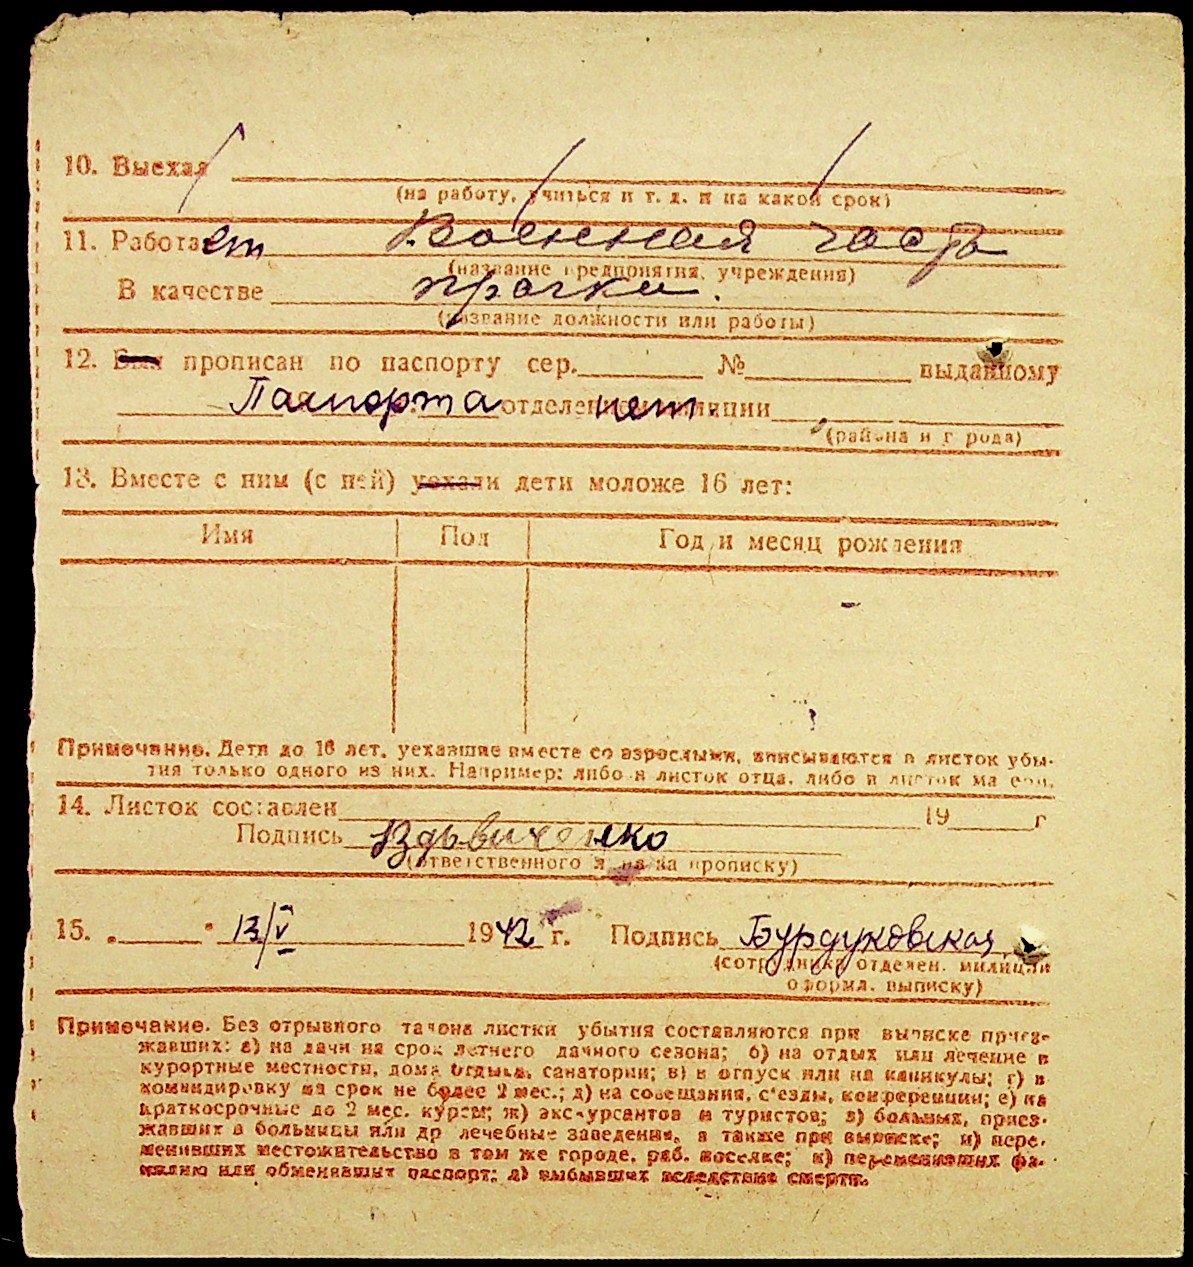 10. Выехал
(на работу, учиться и т. д. и на какой срок)
11. Работает Военная часть
(название предпрнятия, учреждения)
В качестве прачки.
(название должности или работы)
12. Был прописан по паспорту сер. № выданному
Паспорта отделением нет милиции
(района и города)
13. Вместе с ним (с ней) уехали дети моложе 16 лет:
Имя Пол Год и месяц рождения
Примечание. Дети до 16 лет, уехавшие вместе со взрослыми, вписываются в листок убы-
тия только одного из них. Например: либо в листок отца, либо в листок матери.
14. Листок составлен 19 г
Подпись
(ответственного за прописку)
15. „ " 13/V 1942 г. Подпись Бурдуковская
(сотрудника отделен. милиции
оформл. выписку)
Примечание. Без отрывного талона листки убытия составляются при выписке приез-
жавших: а) на дачи на срок летнего дачного сезона; б) на отдых или лечение в
курортные местности, дома отдыха, санатории; в) в отпуск или на каникулы; г) в
командировку на срок не более 2 мес.; д) на совещания, с'езды, конференции; е) на
краткосрочные до 2 мес. курсы; ж) экскурсантов и туристов; з) больных, приез-
жавших в больницы или др лечебные заведения, а также при выписке; и) пере-
менивших местожительство в том же городе, раб. поселке; к) переменивших фа-
милию или обменявших паспорт; л) выбывших вследствие смерти.